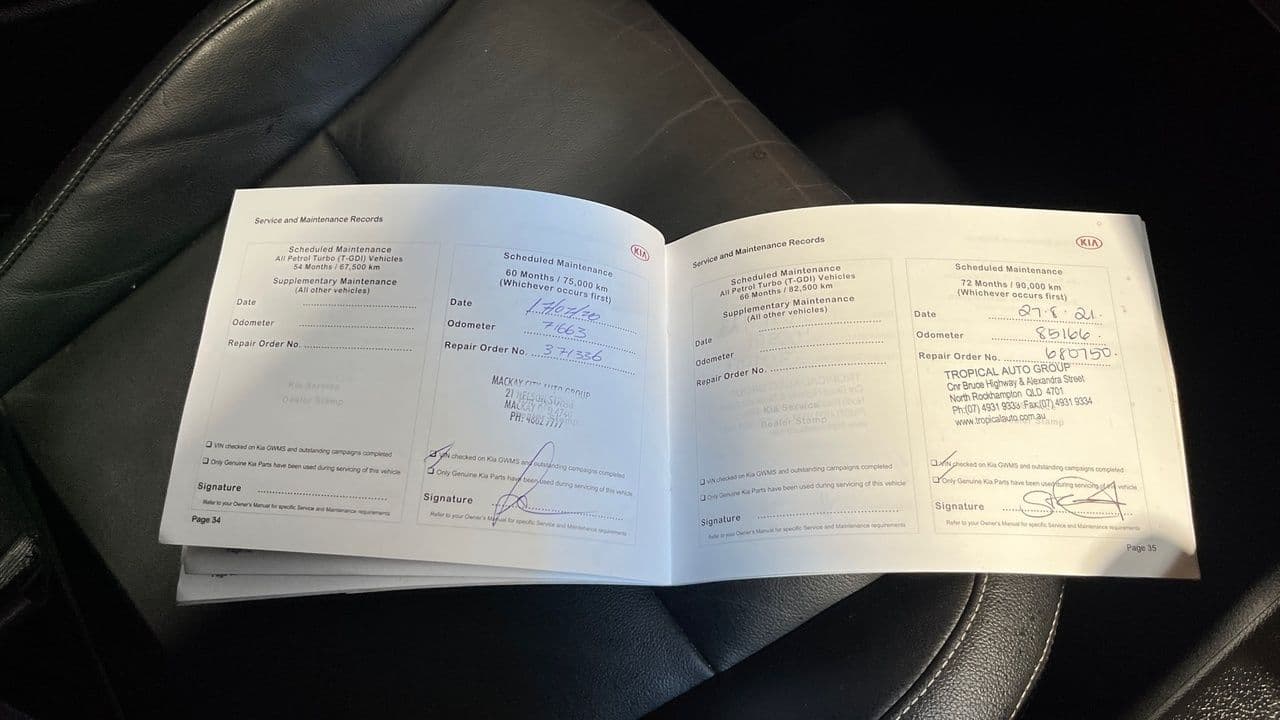 Service and Maintenance Records
KIA
Scheduled Maintenance
All Petrol Turbo (T-GDI) Vehicles
54 Months / 67,500 km
Supplementary Maintenance
(All other vehicles)
Date
Odometer
Repair Order No.
Kia Service
Dealer Stamp
❑ VIN checked on Kia GWMS and outstanding campaigns completed
❑ Only Genuine Kia Parts have been used during servicing of this vehicle
Signature
Refer to your Owner's Manual for specific Service and Maintenance requirements
Page 34
Scheduled Maintenance
60 Months / 75,000 km
(Whichever occurs first)
Date 17/07/20
Odometer 71663
Repair Order No. 371336
MACKAY CITY AUTO GROUP
21
MACKAY
PH:
❑ VIN checked on Kia GWMS and outstanding campaigns completed
❑ Only Genuine Kia Parts have been used during servicing of this vehicle
Signature
Refer to your Owner's Manual for specific Service and Maintenance requirements
Service and Maintenance Records
KIA
Scheduled Maintenance
All Petrol Turbo (T-GDI) Vehicles
66 Months / 82,500 km
Supplementary Maintenance
(All other vehicles)
Date
Odometer
Repair Order No.
Kia Service
Dealer Stamp
❑ VIN checked on Kia GWMS and outstanding campaigns completed
❑ Only Genuine Kia Parts have been used during servicing of this vehicle
Signature
Refer to your Owner's Manual for specific Service and Maintenance requirements
Scheduled Maintenance
72 Months / 90,000 km
(Whichever occurs first)
Date 27.8.21.
Odometer 85166.
Repair Order No. 680750.
TROPICAL AUTO GROUP
Cnr Bruce Highway & Alexandra Street
North Rockhampton QLD 4701
Ph:(07) 4931 9333 Fax:(07) 4931 9334
www.tropicalauto.com.au
Stamp
❑ VIN checked on Kia GWMS and outstanding campaigns completed
❑ Only Genuine Kia Parts have been used during servicing of this vehicle
Signature
Refer to your Owner's Manual for specific Service and Maintenance requirements
Page 35